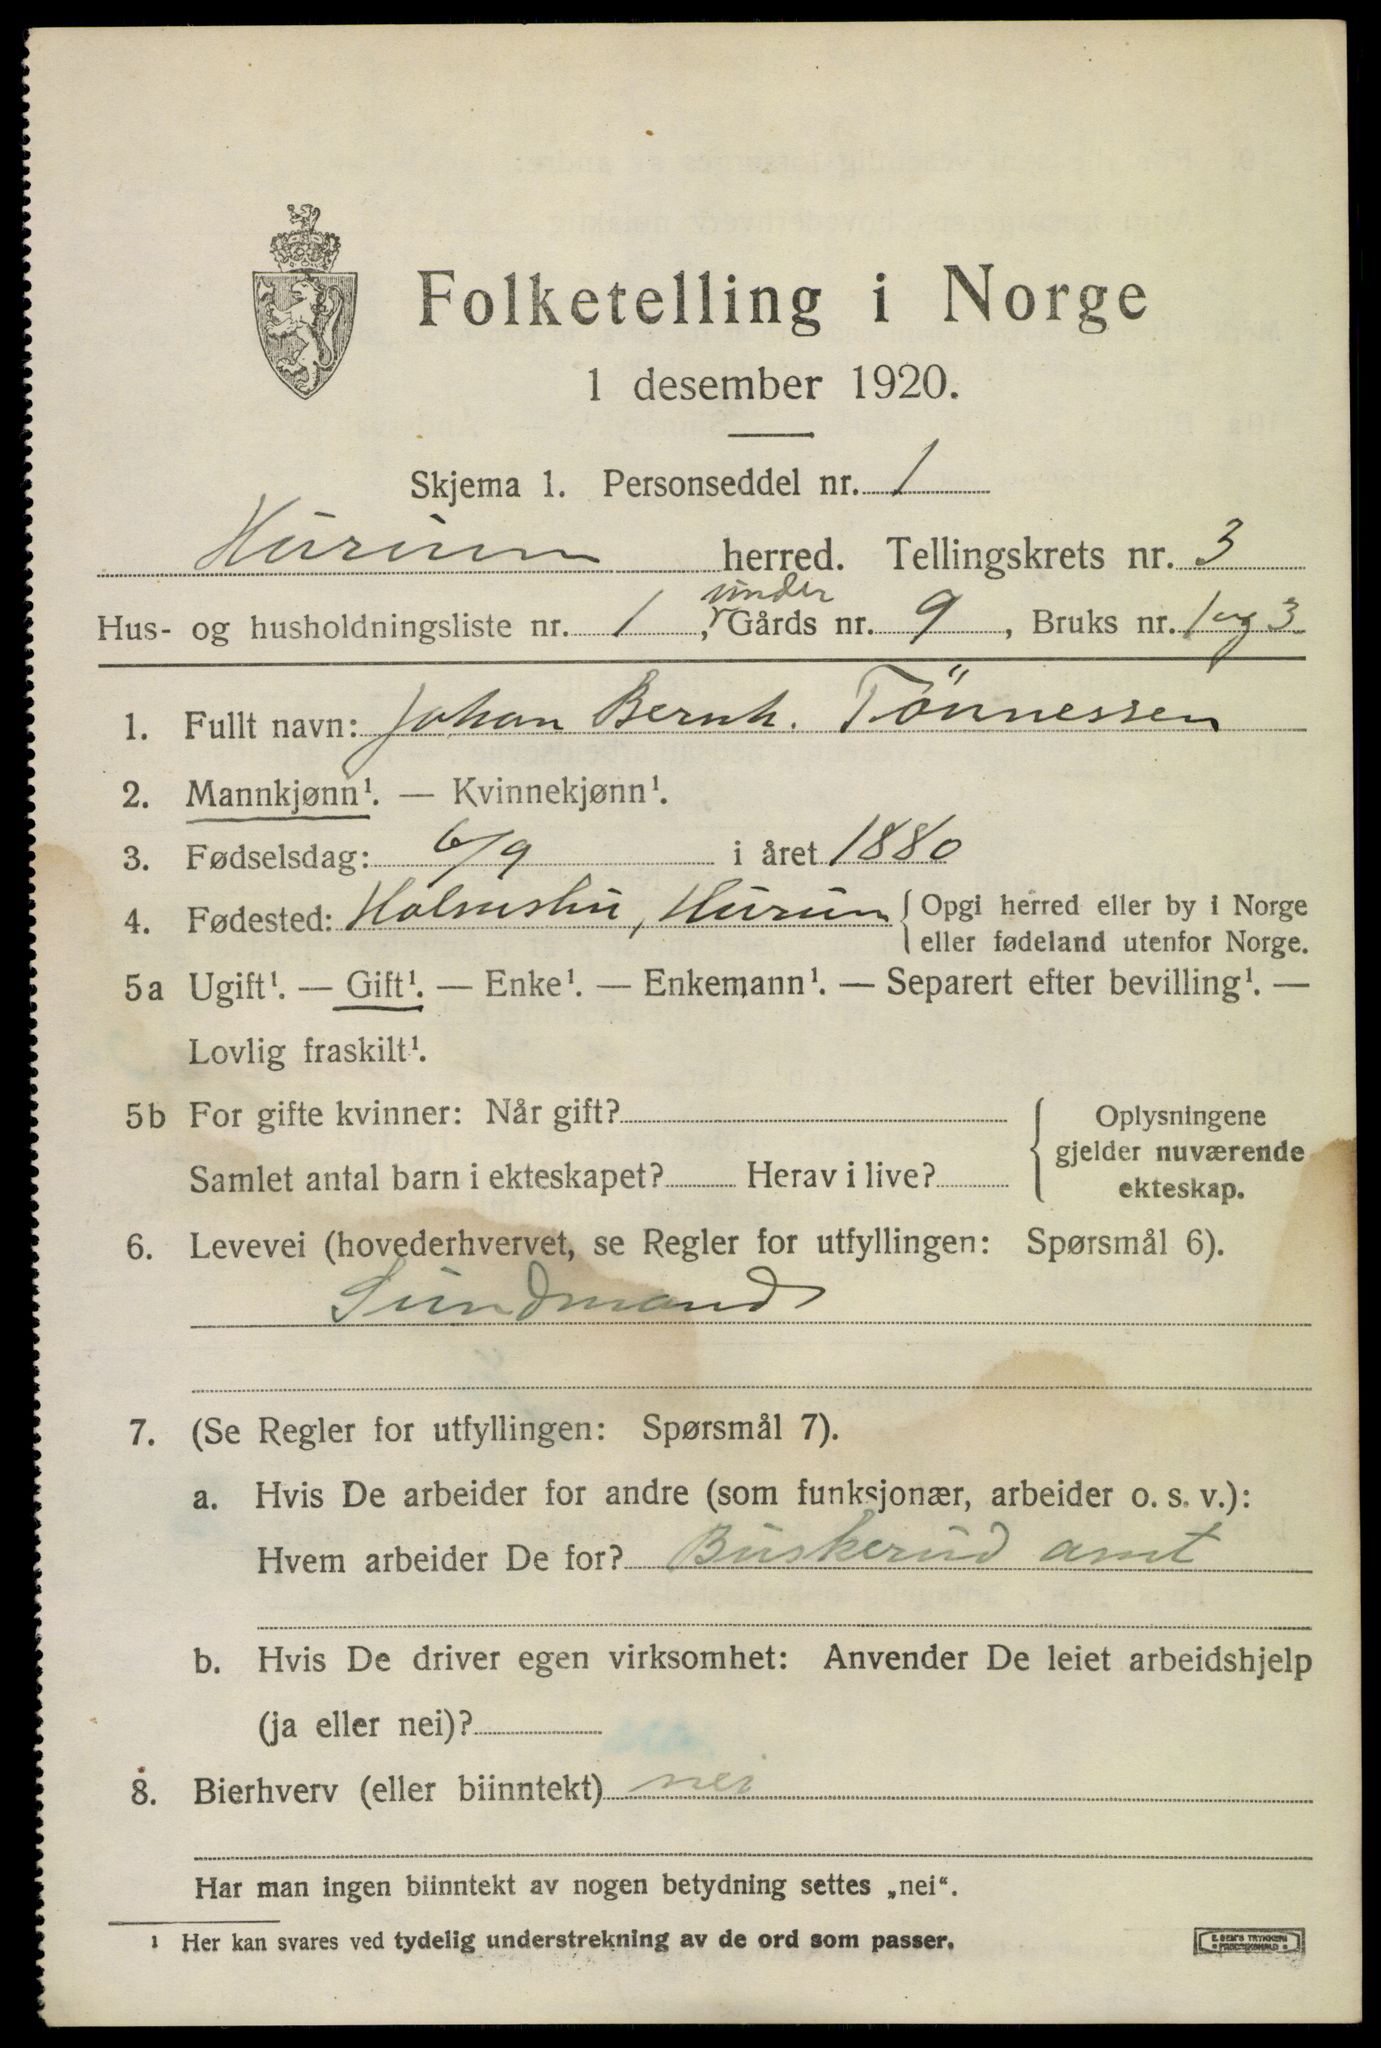 Folketelling i Norge
1 desember 1920.
Skjema 1. Personseddel nr. 1
Hurum herred. Tellingskrets nr. 3
under
Hus- og husholdningsliste nr. 1, Gårds nr. 9, Bruks nr. 1 og 3
1. Fullt navn: Johan Bernh. Tönnessen
2. Mannkjønn¹. — Kvinnekjønn¹.
3. Fødselsdag: 6/9 i året 1880
4. Fødested: Holmsbu, Hurum { Opgi herred eller by i Norge
eller fødeland utenfor Norge.
5a Ugift¹. — Gift¹. — Enke¹. — Enkemann¹. — Separert efter bevilling¹. —
Lovlig fraskilt¹.
5b For gifte kvinner: Når gift? { Oplysningene
gjelder nuværende
Samlet antal barn i ekteskapet? Herav i live? ekteskap.
6. Levevei (hovederhvervet, se Regler for utfyllingen: Spørsmål 6).
Sundmand
7. (Se Regler for utfyllingen: Spørsmål 7).
a. Hvis De arbeider for andre (som funksjonær, arbeider o. s. v.):
Hvem arbeider De for? Buskerud amt
b. Hvis De driver egen virksomhet: Anvender De leiet arbeidshjelp
(ja eller nei)?
8. Bierhverv (eller biinntekt) nei
Har man ingen biinntekt av nogen betydning settes „nei“.
¹ Her kan svares ved tydelig understrekning av de ord som passer.
E. SEM'S TRYKKERI
FREDRIKSHALD